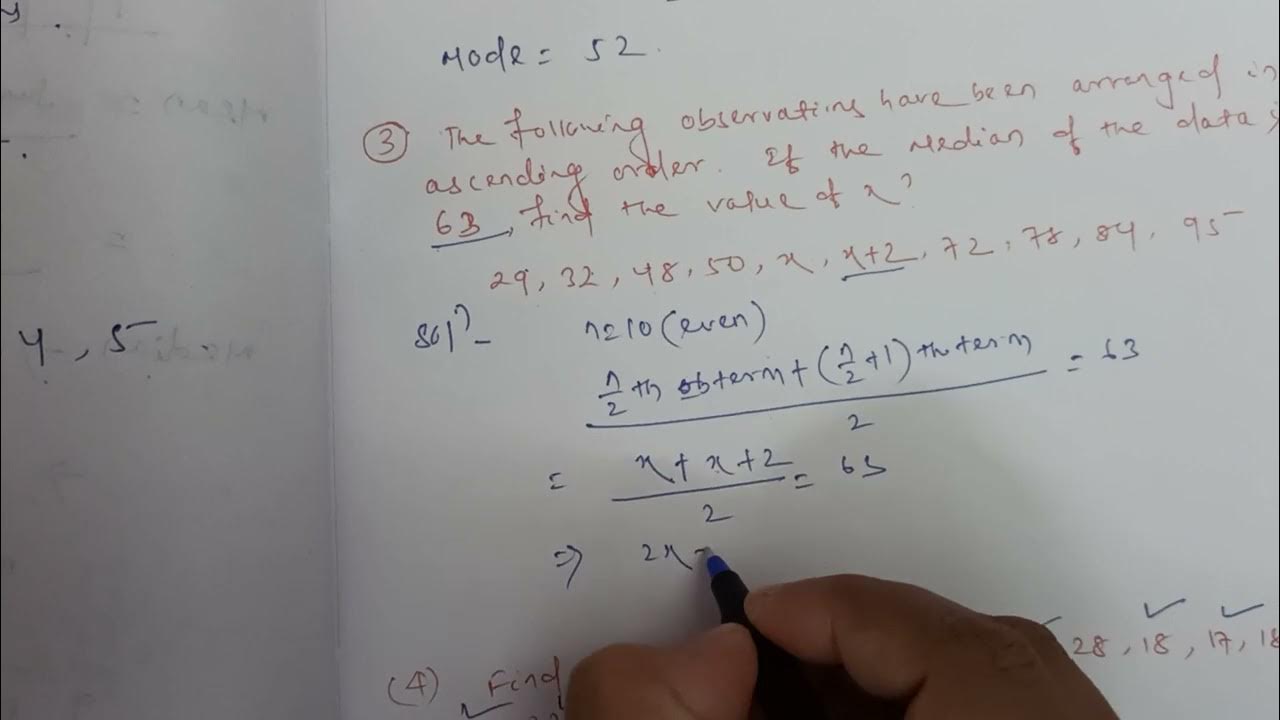 Mode = 52.
③ The following observatins have been arranged in
ascending order. If the Median of the data
63, find the value of x?
29, 32, 48, 50, x, x+2, 72, 78, 84, 95
Sol? - n=10 (even)
n/2 th obterm + (n/2 + 1) th term / 2 = 63
= x + x + 2 / 2 = 63
⇒ 2x
4, 5
(4) Find
28, 18, 17, 18